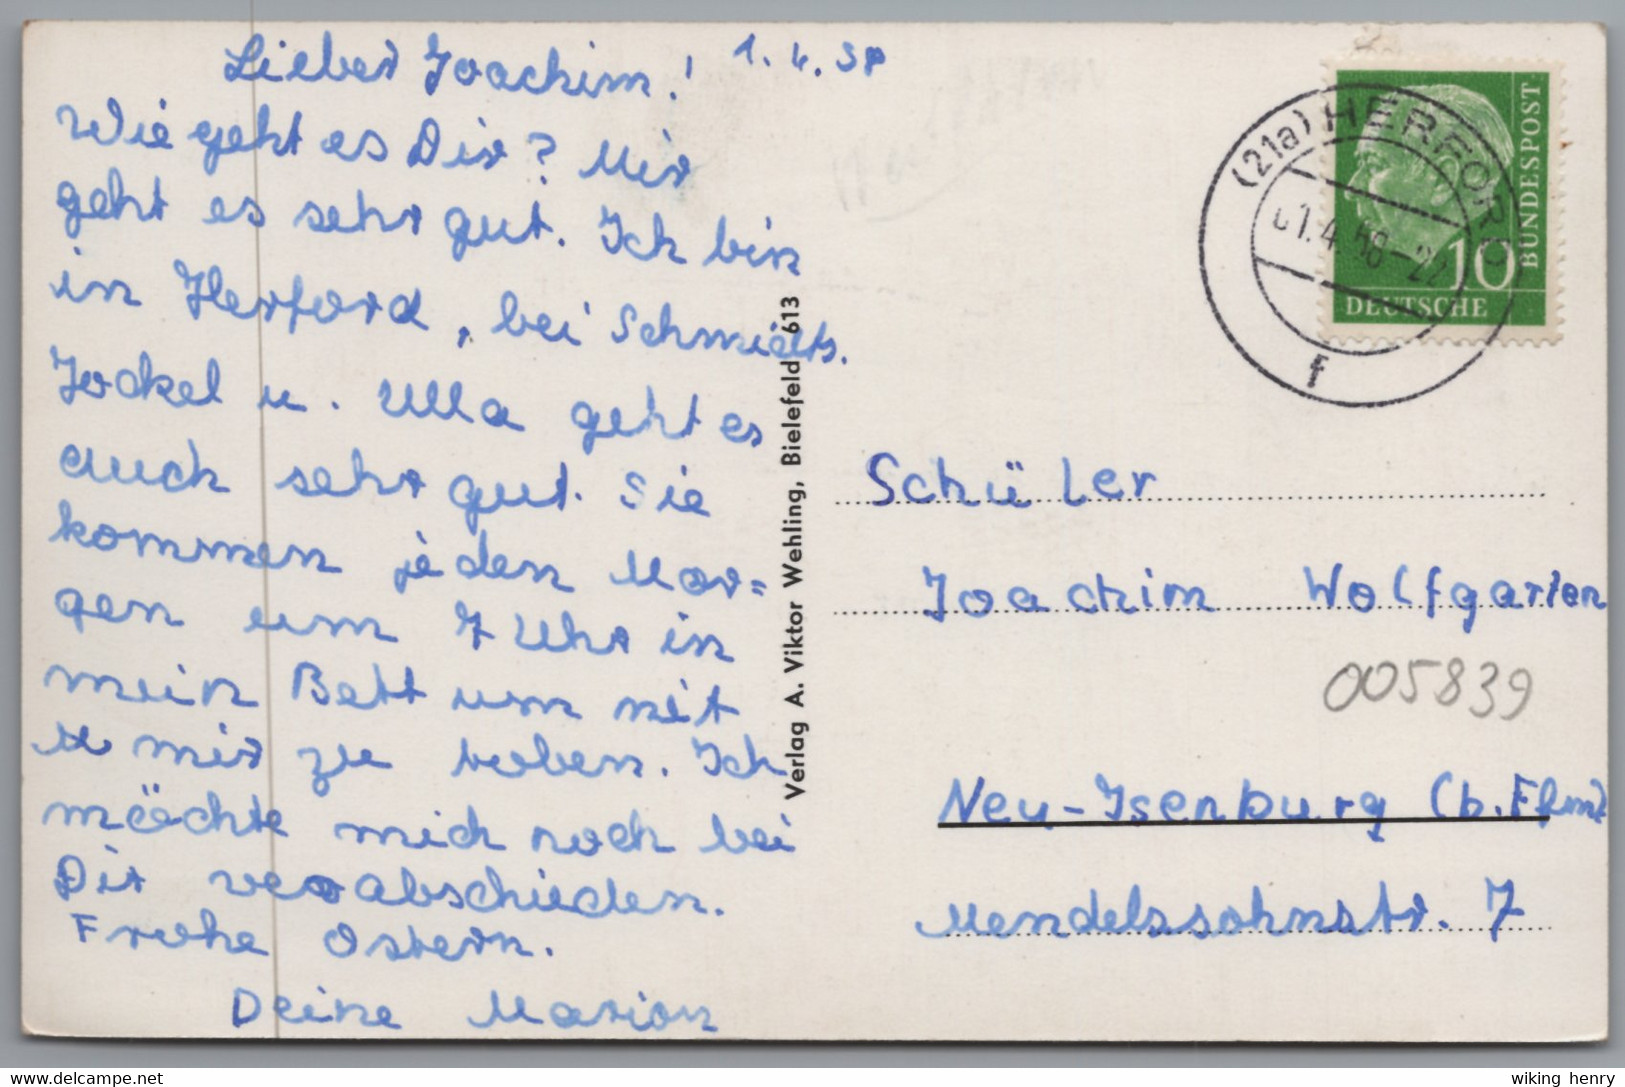 Lieber Joachim! 1.4.58
Wie geht es Dir? Mir
geht es sehr gut. Ich bin
in Herford, bei Schmidts.
Jockel u. Ulla geht es
auch sehr gut. Sie
kommen jeden Mor=
gen um 7 Uhr in
mein Bett um mit
mir zu toben. Ich
möchte mich noch bei
Dir verabschieden.
Frohe Ostern.
Deine Marion
Verlag A. Viktor Wehling, Bielefeld 613
(21a) HERFORD
01.4.58-22
f
BUNDESPOST
10
DEUTSCHE
Schüler
Joachim Wolfgarten
005839
Neu-Isenburg (b. Ffm)
Mendelssohnstr. 7
delcampe.net
wiking henry